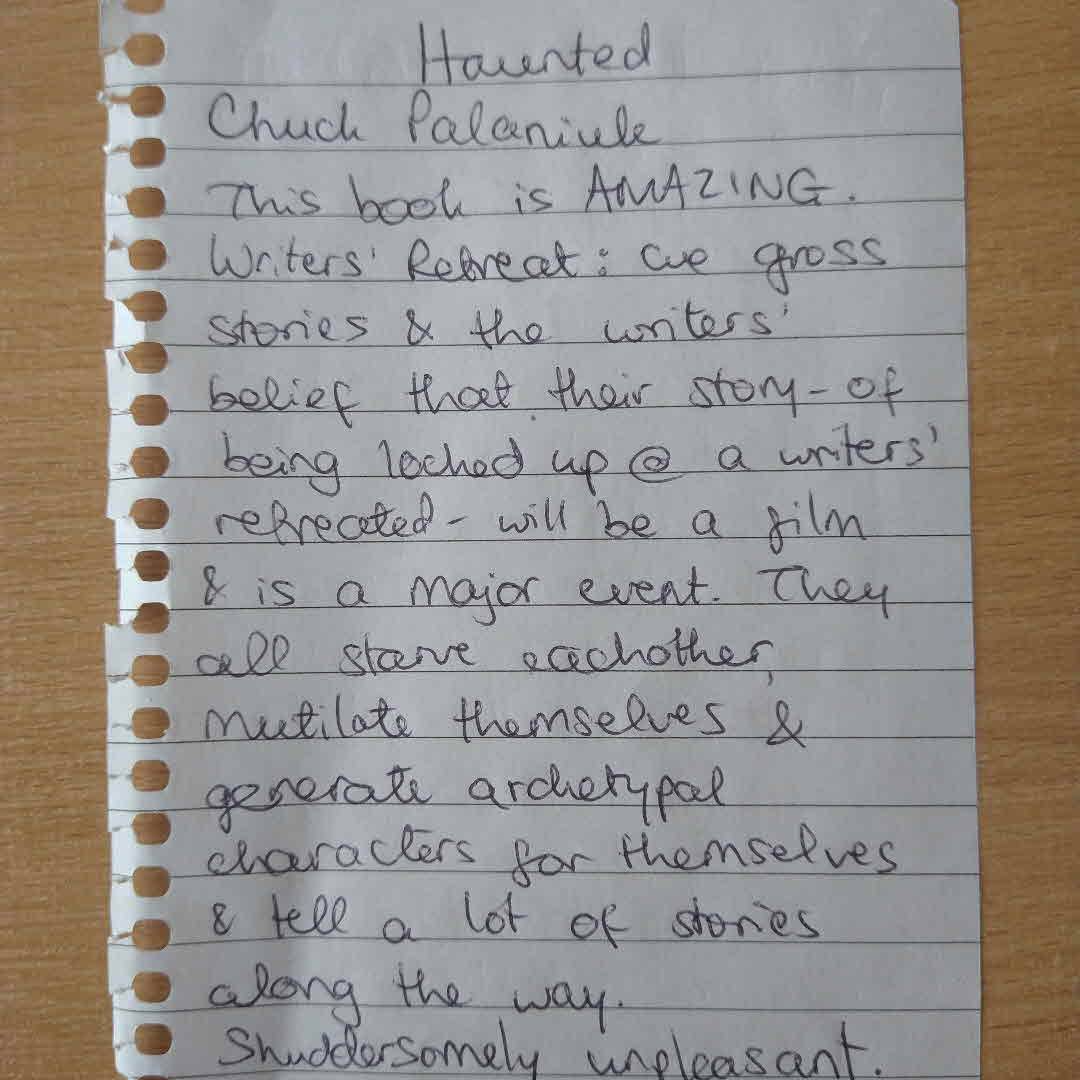 Haunted
Chuck Palaniuk
This book is AMAZING.
Writers' Retreat: gross
stories & the writers'
belief that their story - of
being locked up @ a writers'
retreated - will be a film
& is a major event. They
all starve eachother,
mutilate themselves &
generate archetypal
characters for themselves
& tell a lot of stories
along the way.
Shuddersomely unpleasant.